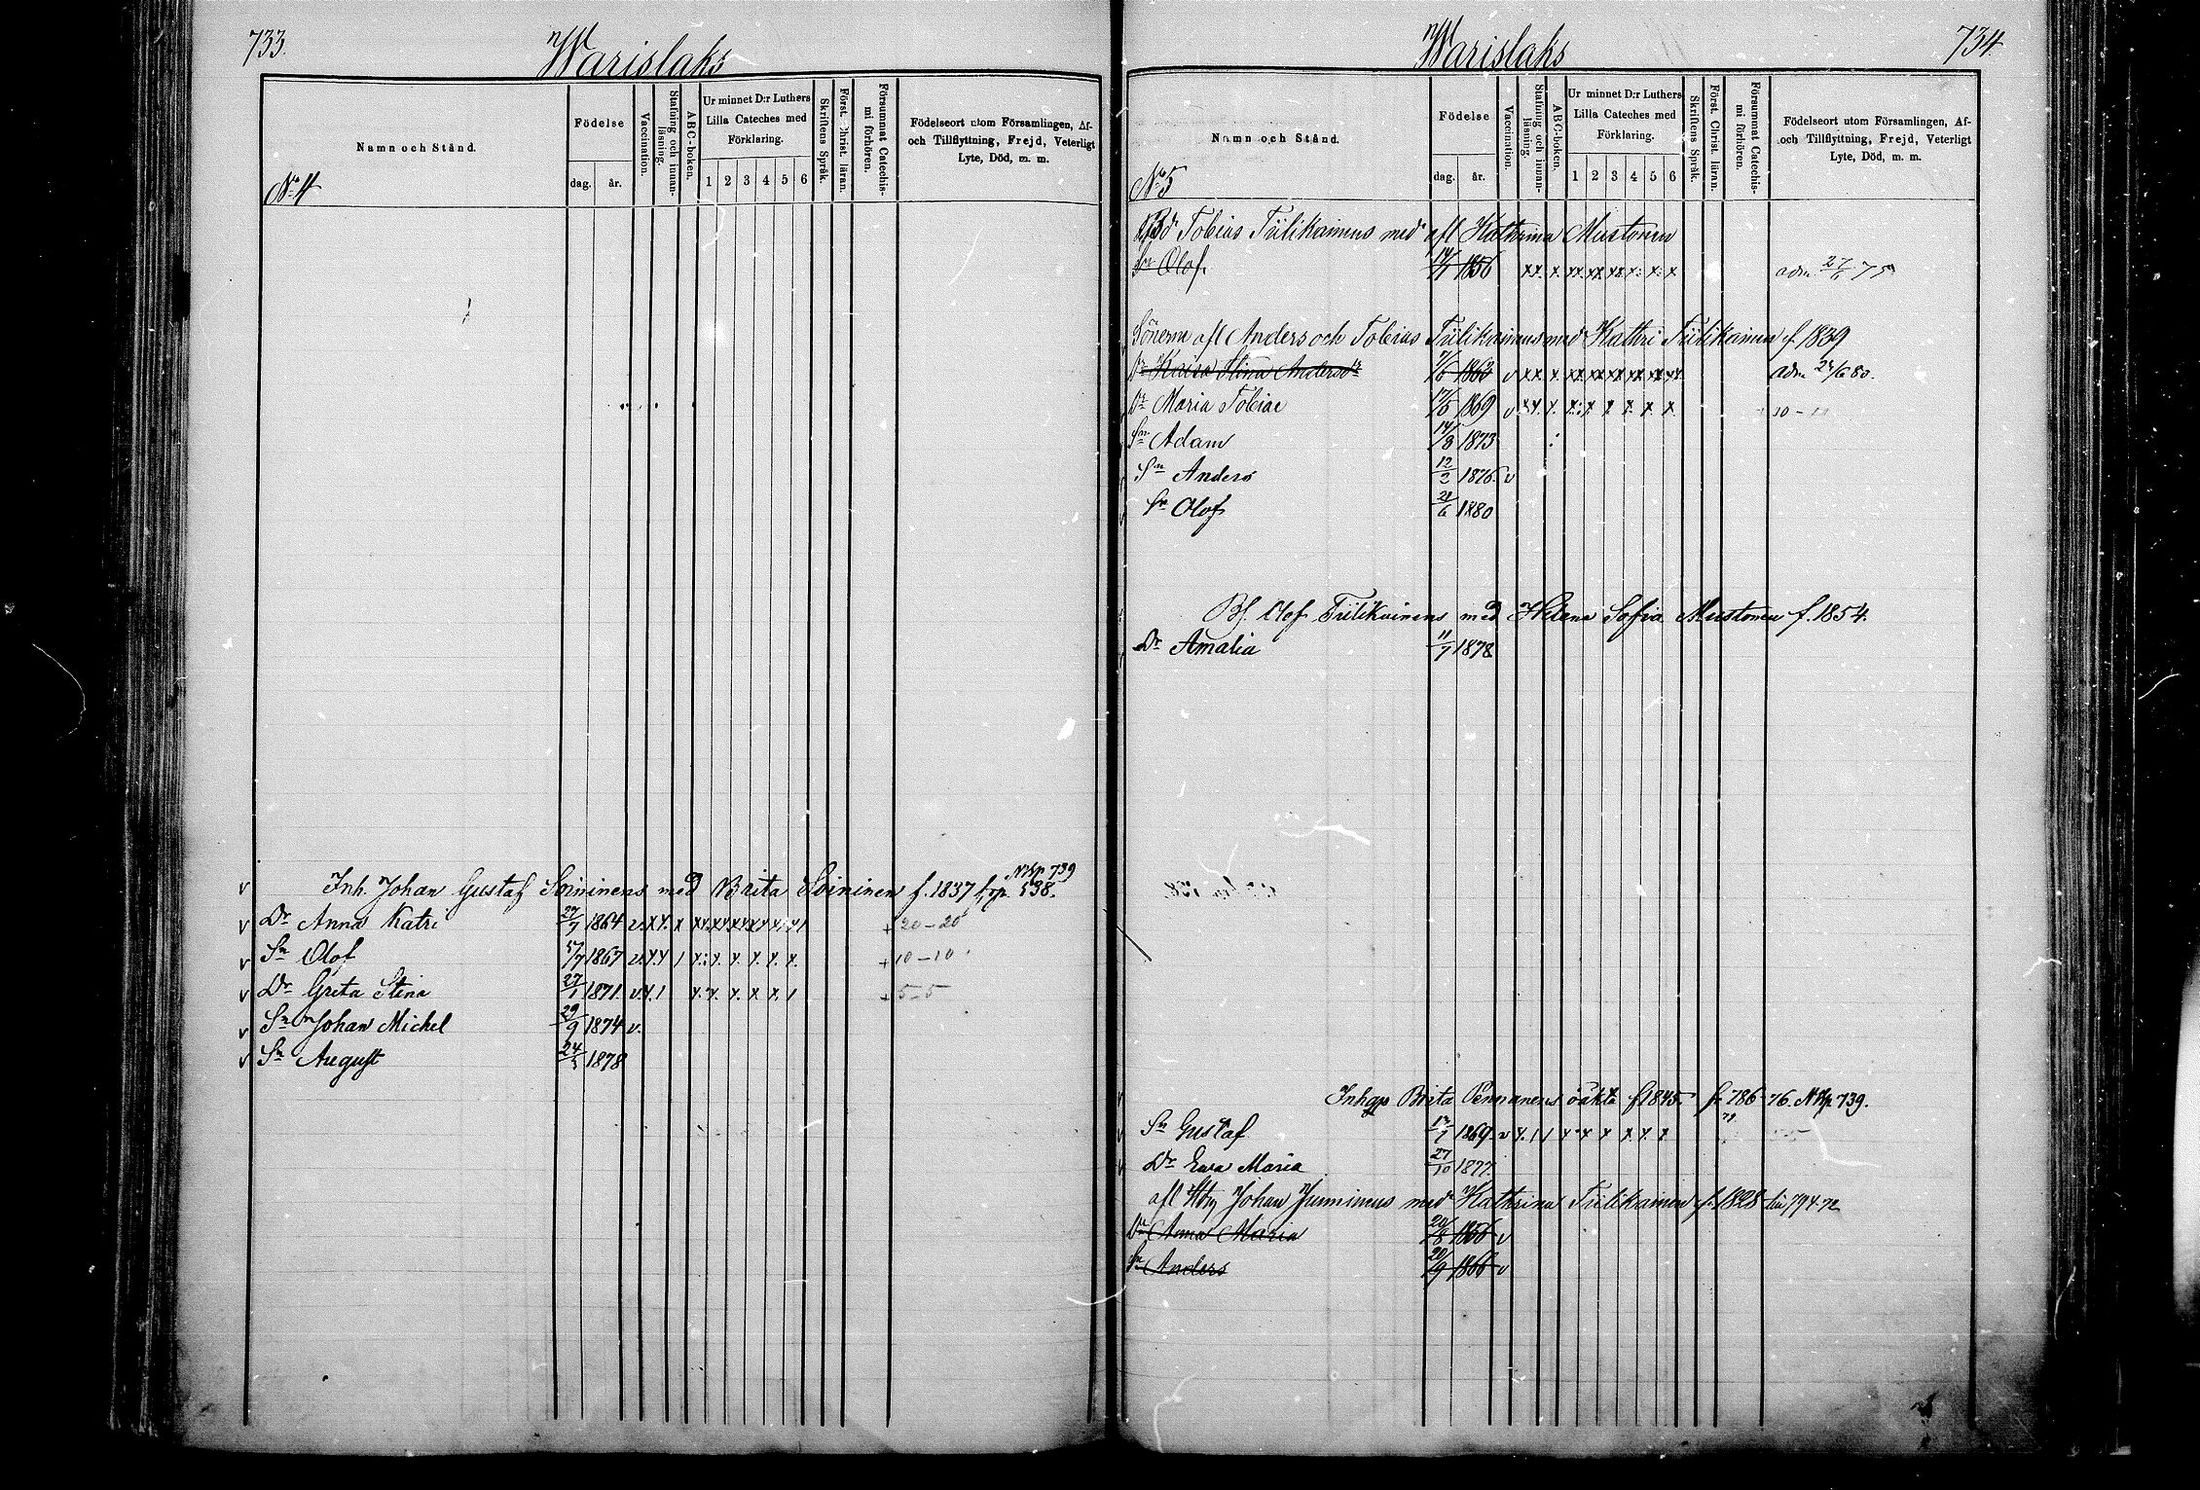 733.
Warislaks
Namn och Stånd.
Födelse
dag. år.
Vaccination.
Stafning och innan-läsning.
ABC-boken.
Ur minnet D:r Luthers Lilla Cateches med Förklaring.
1 2 3 4 5 6
Skriftens Språk.
Först. Christ. läran.
Försummat Catechis-mi förhören.
Födelseort utom Församlingen, Af- och Tillflyttning, Frejd, Veterligt Lyte, Död, m. m.
No 4
Inh. Johan Gustaf Soininens med Brita Soininen f. 1837 538.
NKp 739
v Dr Anna Katri 27/7 1864 + 20-20
v Sn Olof 5/7 1867 + 10-10
v Dr Greta Stina 27/1 1871 + 5-5
v Sn Johan Michel 29/9 1874 v.
v Sn August 24/5 1878
734
Warislaks
Namn och Stånd.
Födelse
dag. år.
Vaccination.
Stafning och innan-läsning.
ABC-boken.
Ur minnet D:r Luthers Lilla Cateches med Förklaring.
1 2 3 4 5 6
Skriftens Språk.
Först. Christ. läran.
Försummat Catechis-mi förhören.
Födelseort utom Församlingen, Af- och Tillflyttning, Frejd, Veterligt Lyte, Död, m. m.
No 5
Tobias Tiilikainens med afl Kathrina Mustonen
Sn Olof 1856 adm 75
Sönerna afl Anders och Tobias Tiilikainens med Kathri Tiilikainen f 1839
Dr Kaisa Stina Andersdr 1863 v adm 24/6 80.
Dr Maria Tobiae 1869 v 10-
Sn Adam 14/8 1873
Sn Anders 12/2 1876 v
Sn Olof 21/6 1880
Bf. Olof Tiilikainens med Helena Sofia Mustonen f. 1854.
Dr Amalia 11/7 1878
Brita Pennanens oäkta f 1845. fr 786 76. NKp 739.
Sn Gustaf 1869
Dr Ewa Maria 27/10 1877
afl Johan Immimens med Kathrina Tiilikainen f. 1828 794-72
Dr Anna Maria 20/8 1856 v
Sn Anders 20/9 1866 v